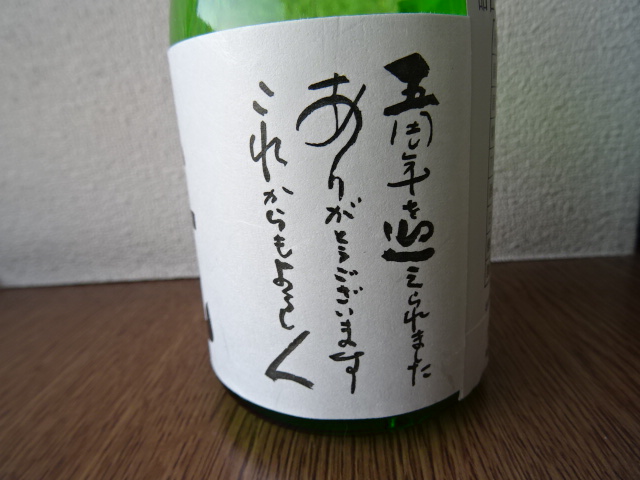 五周年を迎えられました
ありがとうございます
これからもよろしく